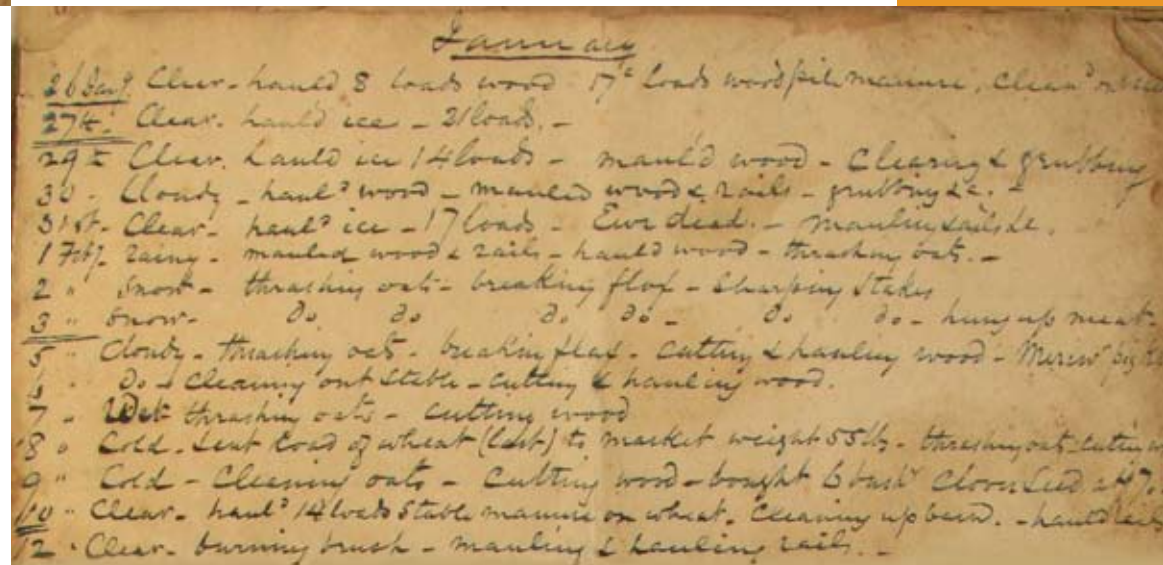 January
26 Jany. Clear - hauld 8 loads wood 17 loads woodpile manure, Clean'd
27th. Clear. hauld ice - 21 loads. -
29th Clear. hauld ice 14 loads - mauld wood - Clearing & grubbing
30 - Cloudy - haul'd wood - mauled wood & rails - grubbing &c. -
31st - Clear - haul'd ice - 17 loads - Ewe dead. - mauling rails &c.
1 Feby. rainy - mauled wood & rails - hauld wood - thrashing oats. -
2 " Snow - thrashing oats - breaking flax - Sharping Stakes
3 " Snow - do do do do - do do - hung up meat.
5 " Cloudy - thrashing oats - breaking flax - Cutting & hauling wood -
6 " do - Cleaning out Stable - Cutting & hauling wood.
7 " Wet thrashing oats - Cutting wood
8 " Cold - Sent load of wheat (last) to market weight 55 lb - thrashing oats - cutting
9 " Cold - Cleaning oats - Cutting wood - bought 6 bush Clover Seed
10 " Clear - haul'd 14 loads Stable manure on wheat. Cleaning up barn. - hauld rails
12 " Clear - burning brush - mauling & hauling rails. -